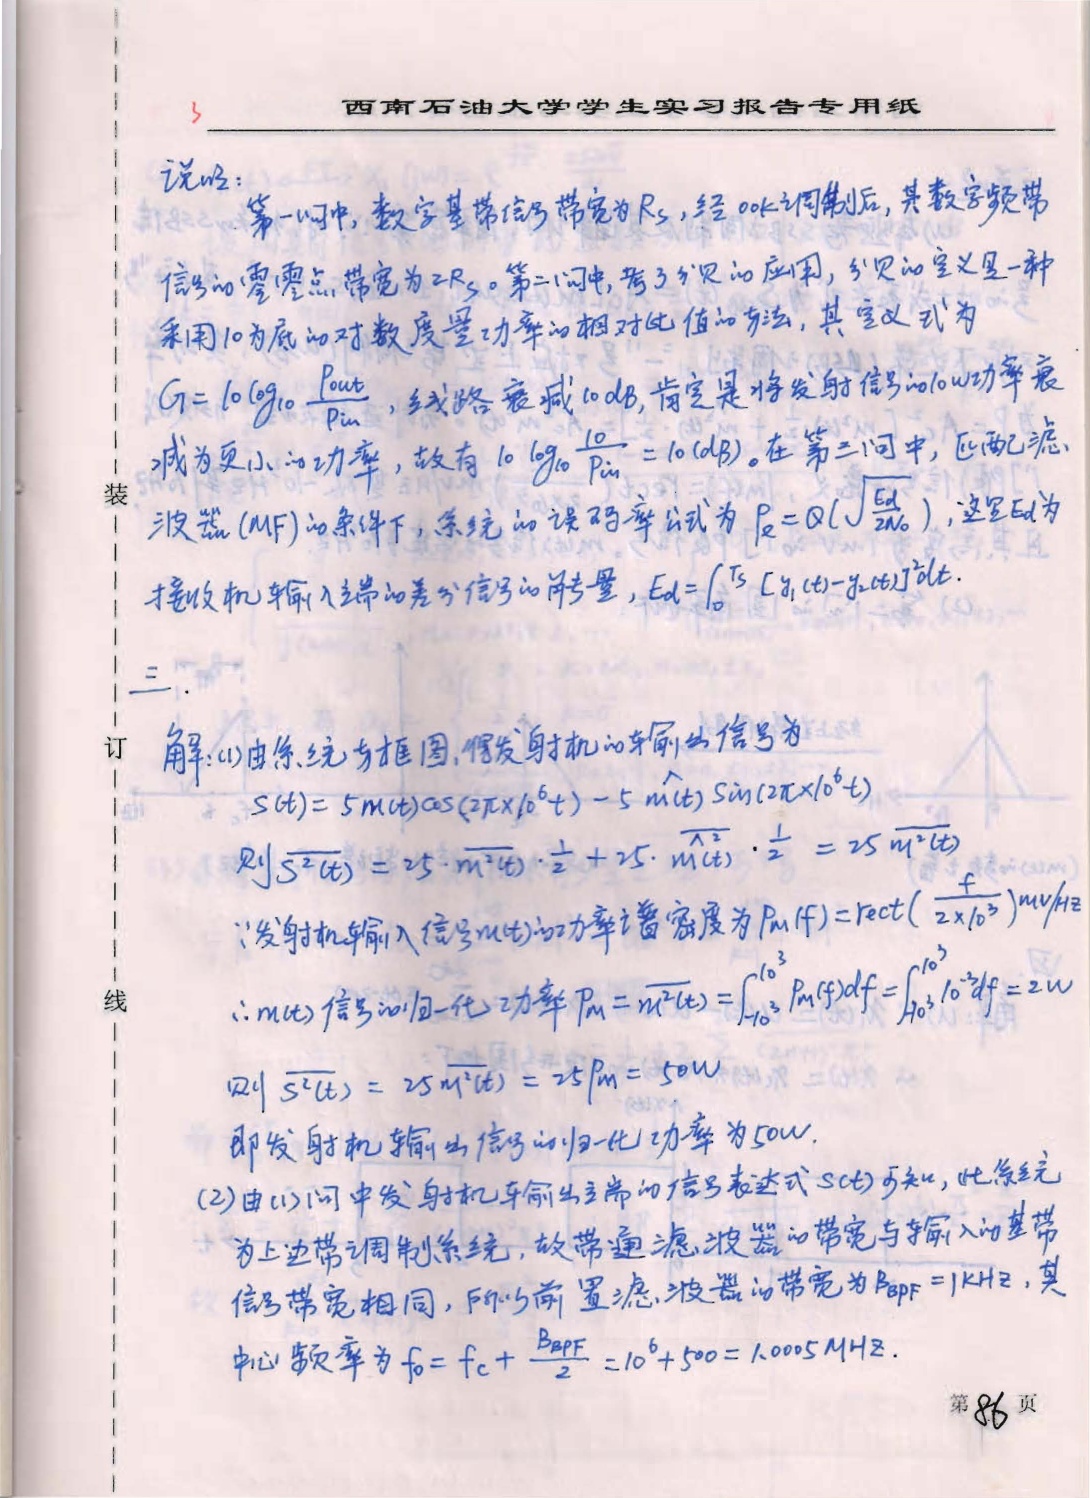 西南石油大学学生实习报告专用纸
说明:
第一问中,数字基带信号带宽为Rs,经OOK调制后,其数字频带
信号的零零点带宽为2Rs。第二问中,考了分贝的应用,分贝的定义是一种
采用10为底的对数度量功率的相对比值的方法,其定义式为
G=10log₁₀ Pout/Pin,线路衰减10dB,肯定是将发射信号的10W功率衰
减为更小的功率,故有 10log₁₀ 10/Pin =10(dB)。在第三问中,匹配滤
波器(MF)的条件下,系统的误码率公式为 Pe=Q(√(Ed/2N₀)),这里Ed为
接收机输入端的差分信号的能量,Ed=∫₀^Ts [y₁(t)-y₂(t)]²dt.
三.
解:(1)由系统方框图,得发射机的输出信号为
S(t)=5m(t)cos(2π×10⁶t)-5m̂(t)Sin(2π×10⁶t)
则 \overline{S²(t)} = 25·\overline{m²(t)}·1/2+25·\overline{m̂²(t)}·1/2 = 25\overline{m²(t)}
∵发射机输入信号m(t)的功率谱密度为Pm(f)=rect(f/2×10³)mV/HZ
∴m(t)信号的归一化功率Pm=\overline{m²(t)}=∫₋₁₀³^10³ Pm(f)df=∫₋₁₀³^10³ 10⁻³df=2W
则 \overline{S²(t)} = 25\overline{m²(t)} = 25Pm=50W
即发射机输出信号的归一化功率为50W.
(2)由(1)问中发射机输出端的信号表达式S(t)可知,此系统
为上边带调制系统,故带通滤波器的带宽与输入的基带
信号带宽相同,所以前置滤波器的带宽为B_BPF=1KHZ,其
中心频率为f₀=fc+B_BPF/2=10⁶+500=1.0005MHZ.
装
订
线
第86页